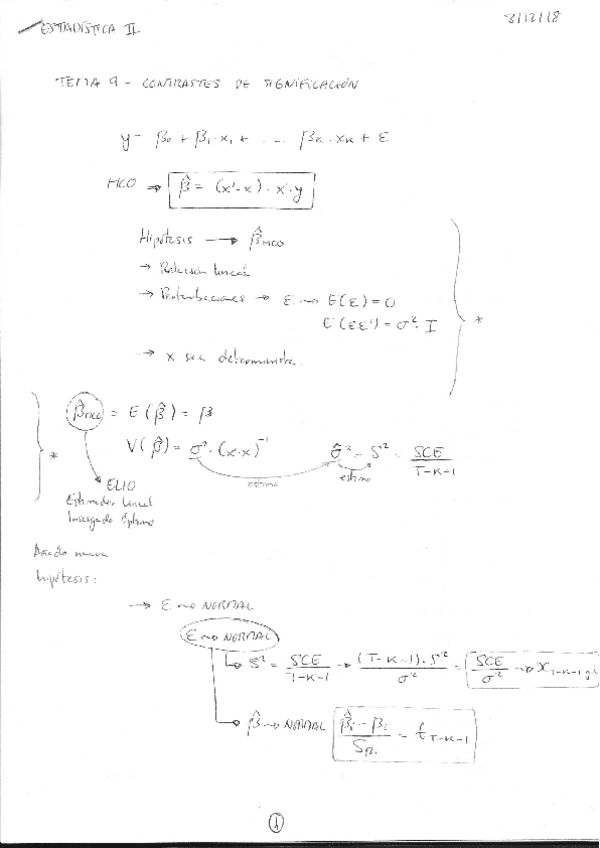 ESTADÍSTICA II
3/12/18
TEMA 9 - CONTRASTES DE SIGNIFICACIÓN
y = β₀ + β₁·x₁ + ... βk·xk + ε
MCO → β̂ = (x'·x)·x'·y
Hipótesis → β̂MCO
→ Relación lineal
→ Perturbaciones → ε → E(ε) = 0
E(εε') = σ²·I
*
→ x sea determinista.
β̂MCO = E(β̂) = β
V(β̂) = σ²·(x·x)⁻¹
σ̂² = S² = SCE / T-K-1
*
estimo
estimo
ELIO
Estimador Lineal
Insesgado Óptimo
Añado nueva
hipótesis:
→ ε → NORMAL
ε → NORMAL
S² = SCE / T-K-1 → (T-K-1)·S² / σ² = SCE / σ² → χ T-K-1 g.l
β̂ → NORMAL β̂i - βi / Sβi = t T-K-1
1